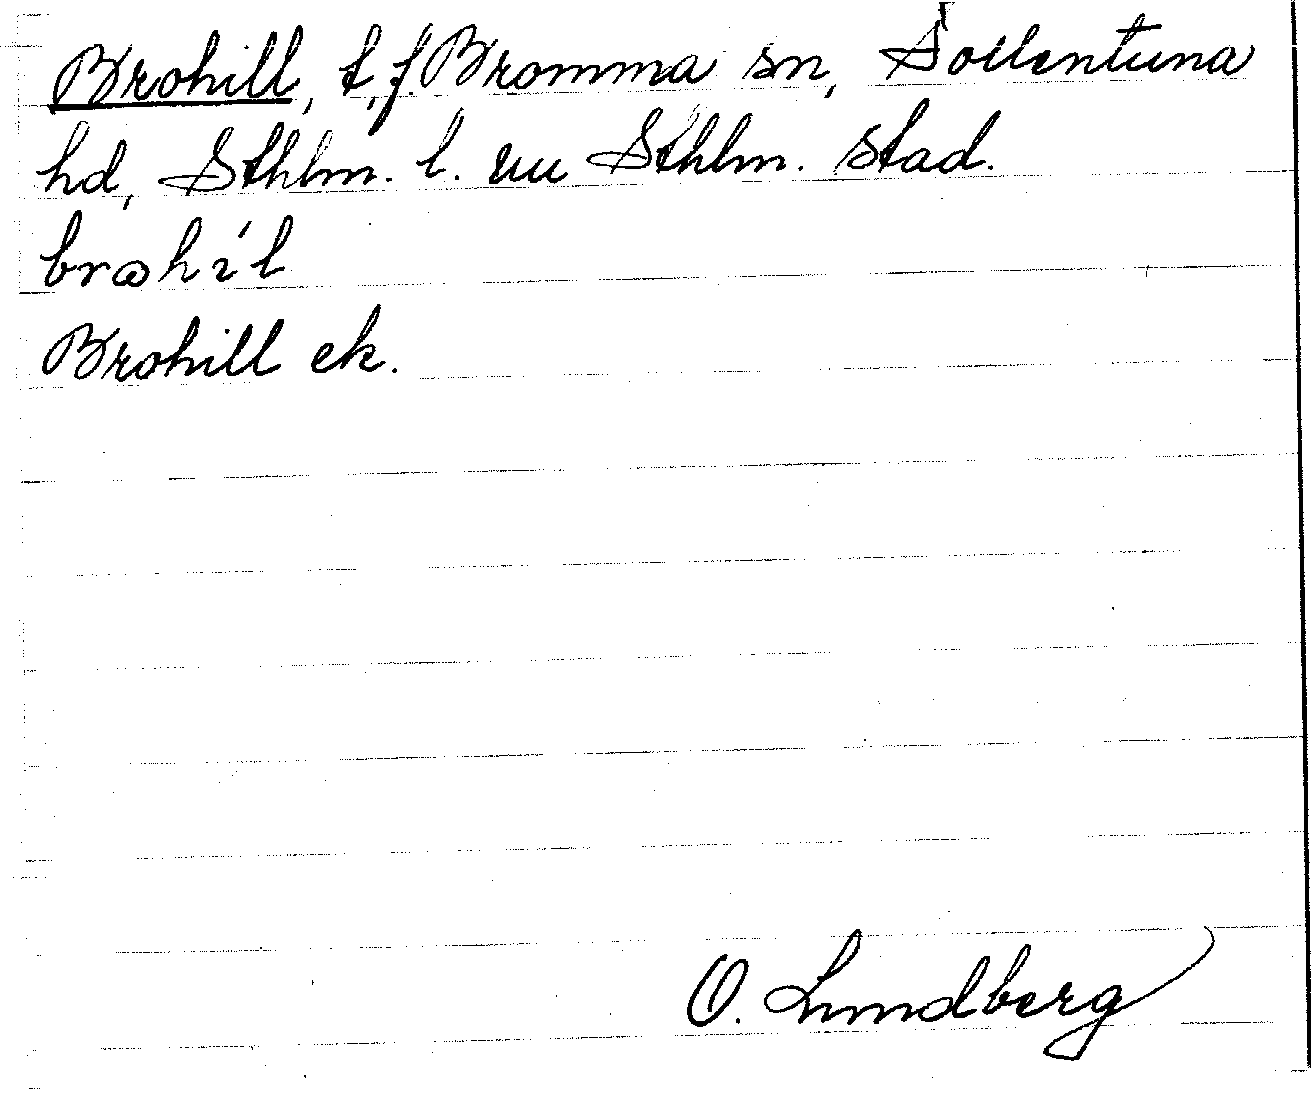 Brohill, t.f. Bromma sn, Sollentuna
hd, Sthlm. l. nu Sthlm. stad.
Brohill ek.
O. Lundberg